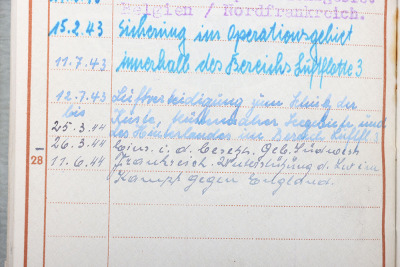 Belgien / Nordfrankreich.
15.2.43 Sicherung im Operationsgebiet
11.7.43 innerhalb des Bereichs Luftflotte 3
12.7.43 Luftverteidigung zum Schutz der
bis Küste, küstennaher Seegebiete und
25.3.44 des Hinterlandes im Bereich Luftfl. 3
26.3.44 Eins. i. d. besetz. Geb. Südwest
28 11.6.44 Frankreich. Unterstützung d. Kr. im
Kampf gegen England.